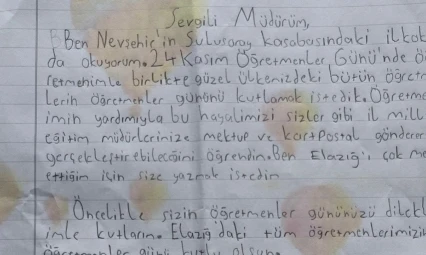 Sevgili Müdürüm,
Ben Nevşehir'in Sulusaray kasabasındaki ilkok
da okuyorum. 24 Kasım Öğretmenler Günü'nde ö
retmenimle birlikte güzel ülkemizdeki bütün öğretm
lerin öğretmenler gününü kutlamak istedik. Öğretme
imin yardımıyla bu hayalimizi sizler gibi il mill
eğitim müdürlerinize mektup ve kartpostal gönderer
gerçekleştirebileceğini öğrendim. Ben Elazığ'ı çok me
ettiğim için size yazmak istedim
Öncelikle sizin öğretmenler gününüzü dilekl
imle kutlarım. Elazığ'daki tüm öğretmenlerimizin
öğretmenler günü kutlu olsun.